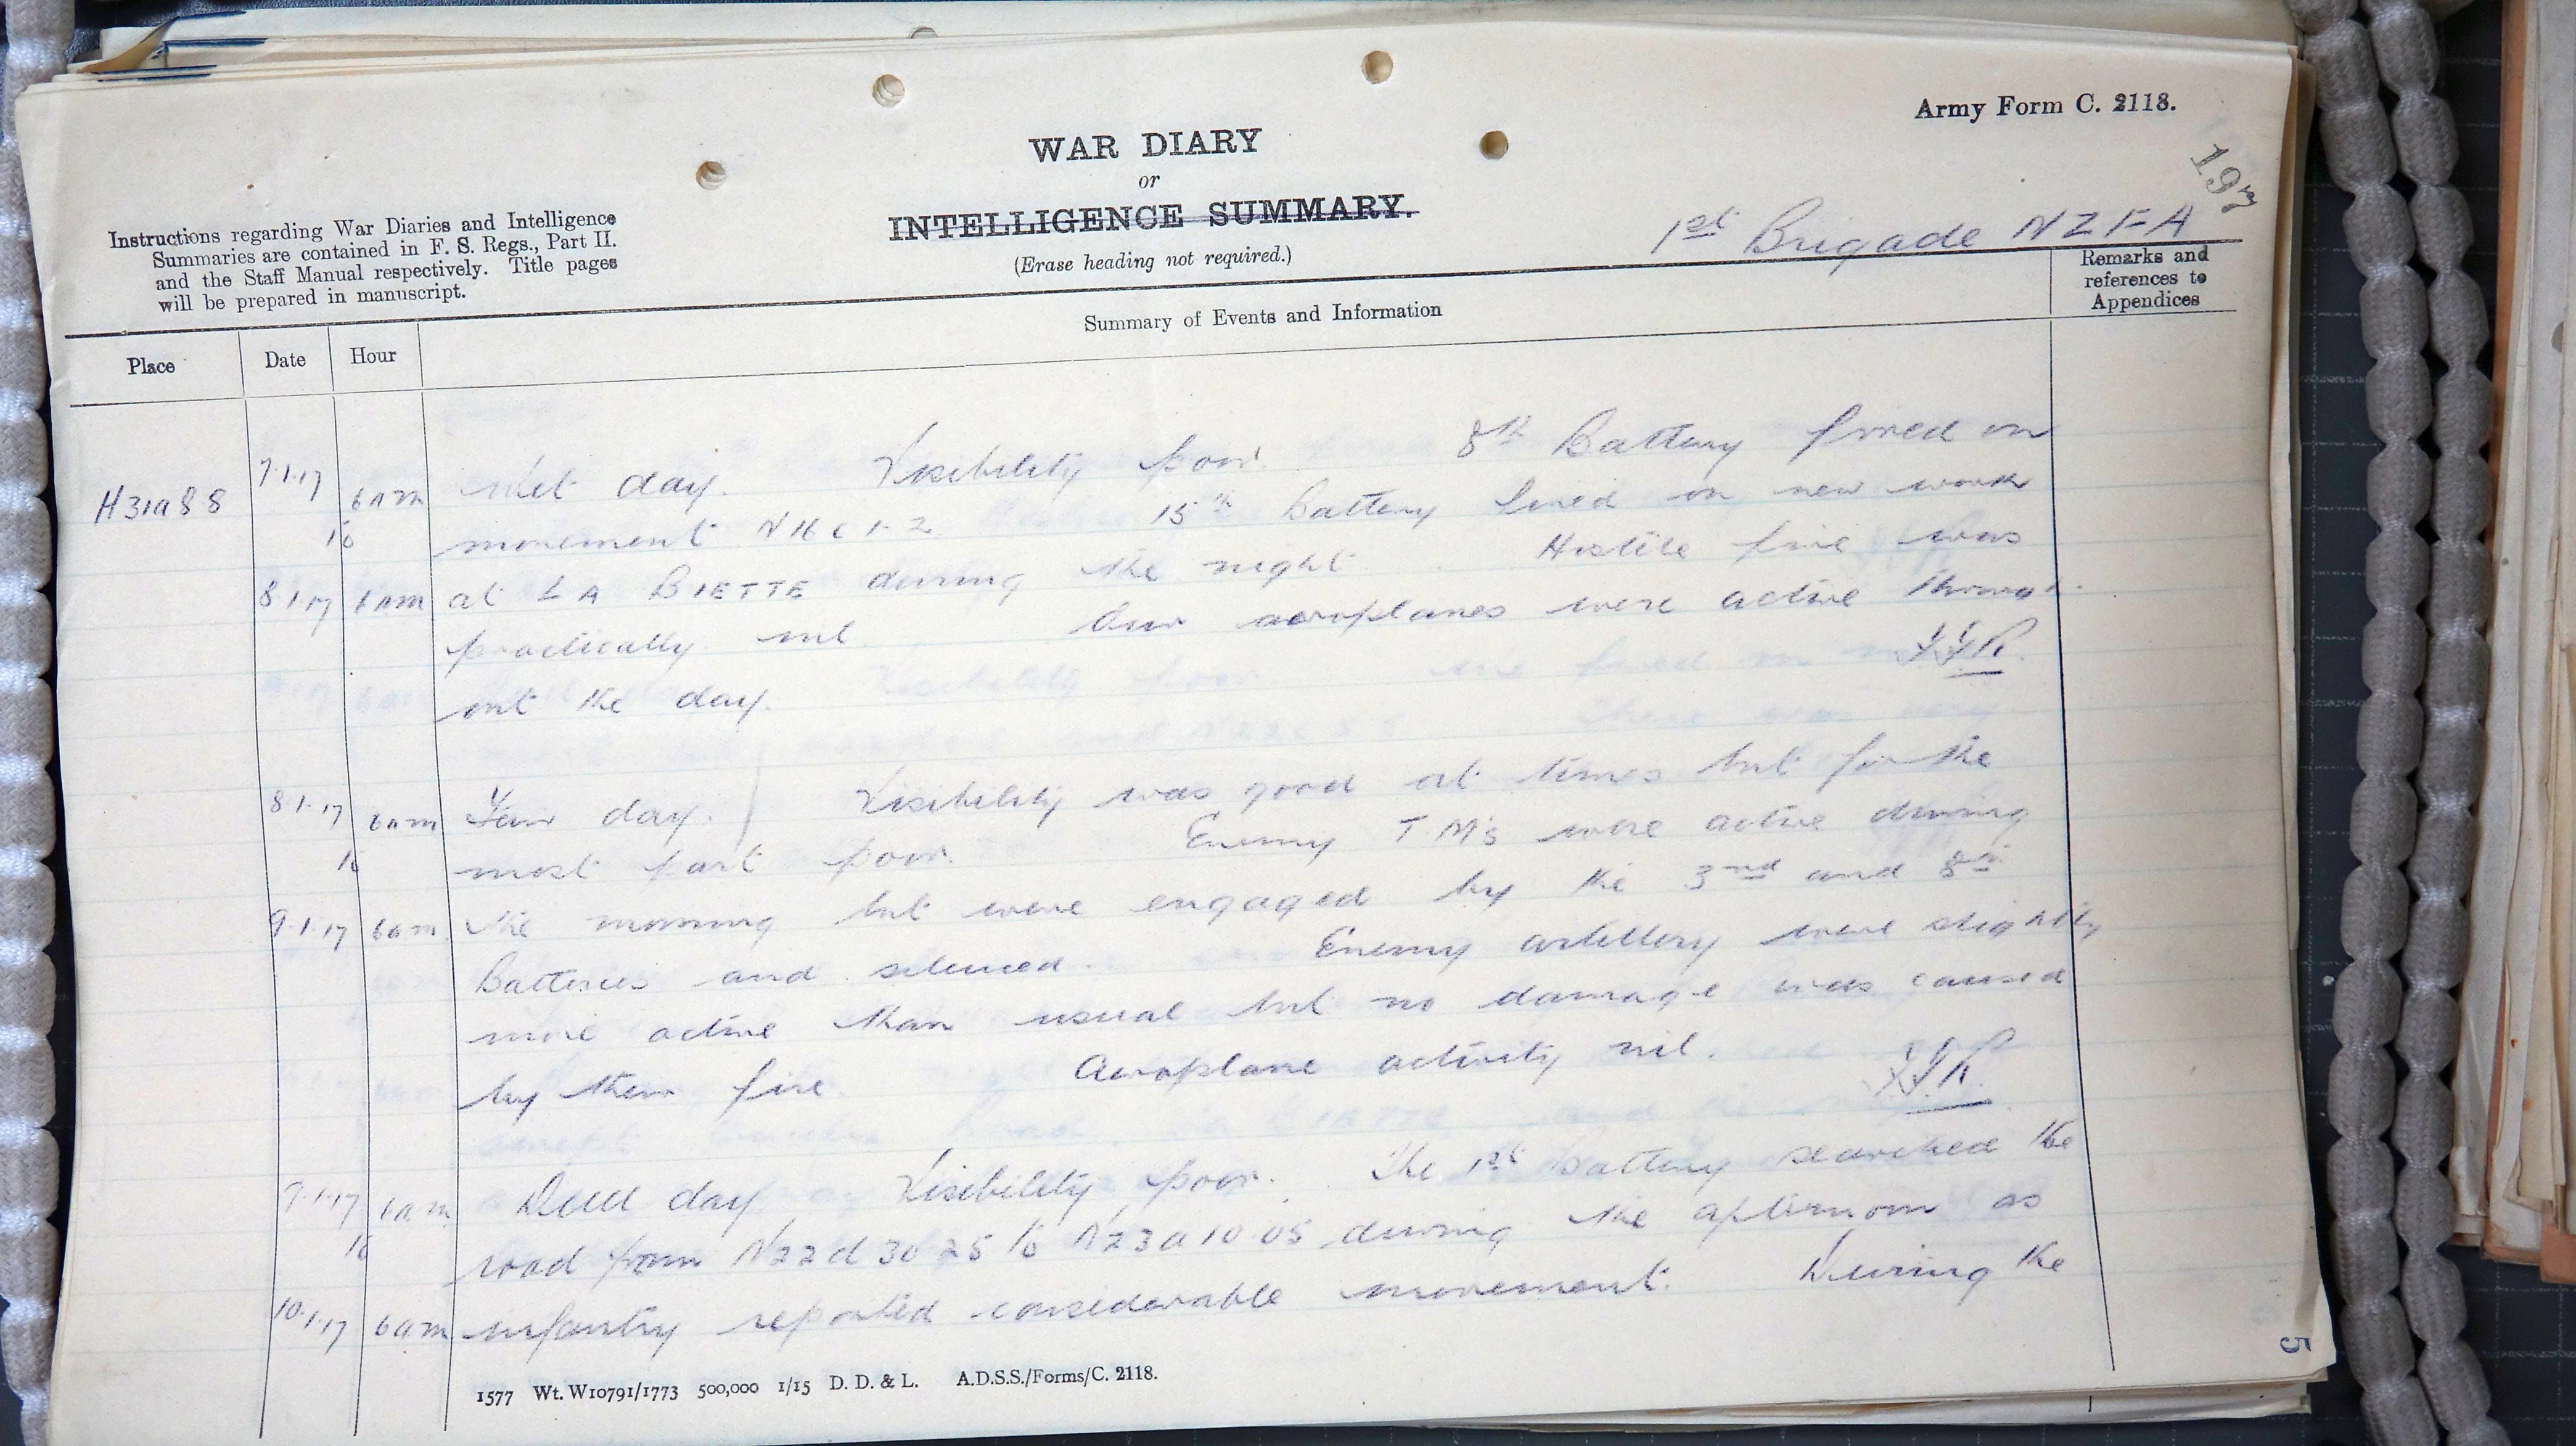 Army Form C. 2118.
197
WAR DIARY
or
INTELLIGENCE SUMMARY.
(Erase heading not required.)
Instructions regarding War Diaries and Intelligence
Summaries are contained in F. S. Regs., Part II.
and the Staff Manual respectively. Title pages
will be prepared in manuscript.
1st Brigade NZFA
Remarks and
references to
Appendices
Summary of Events and Information
Place Date Hour
H31a88 7.1.17 6am Wet day. Visibility poor. 8th Battery fired on
to movement N16c1-2 15th Battery fired on new work
8.1.17 6am at LA BIETTE during the night. Hostile fire was
practically nil. Our aeroplanes were active through-
out the day.
8.1.17 6am Fair day. Visibility was good at times but for the
to most part poor. Enemy T.M's were active during
9.1.17 6am the morning but were engaged by the 3rd and 8th
Batteries and silenced. Enemy artillery were slightly
more active than usual but no damage was caused
by their fire. Aeroplane activity nil.
9.1.17 6am Dull day Visibility poor. The 1st Battery searched the
to road from N22d 30 25 to N23a10 05 during the afternoon as
10.1.17 6am infantry reported considerable movement. During the
1577 Wt. W10791/1773 500,000 1/15 D. D. & L. A.D.S.S./Forms/C. 2118.
5